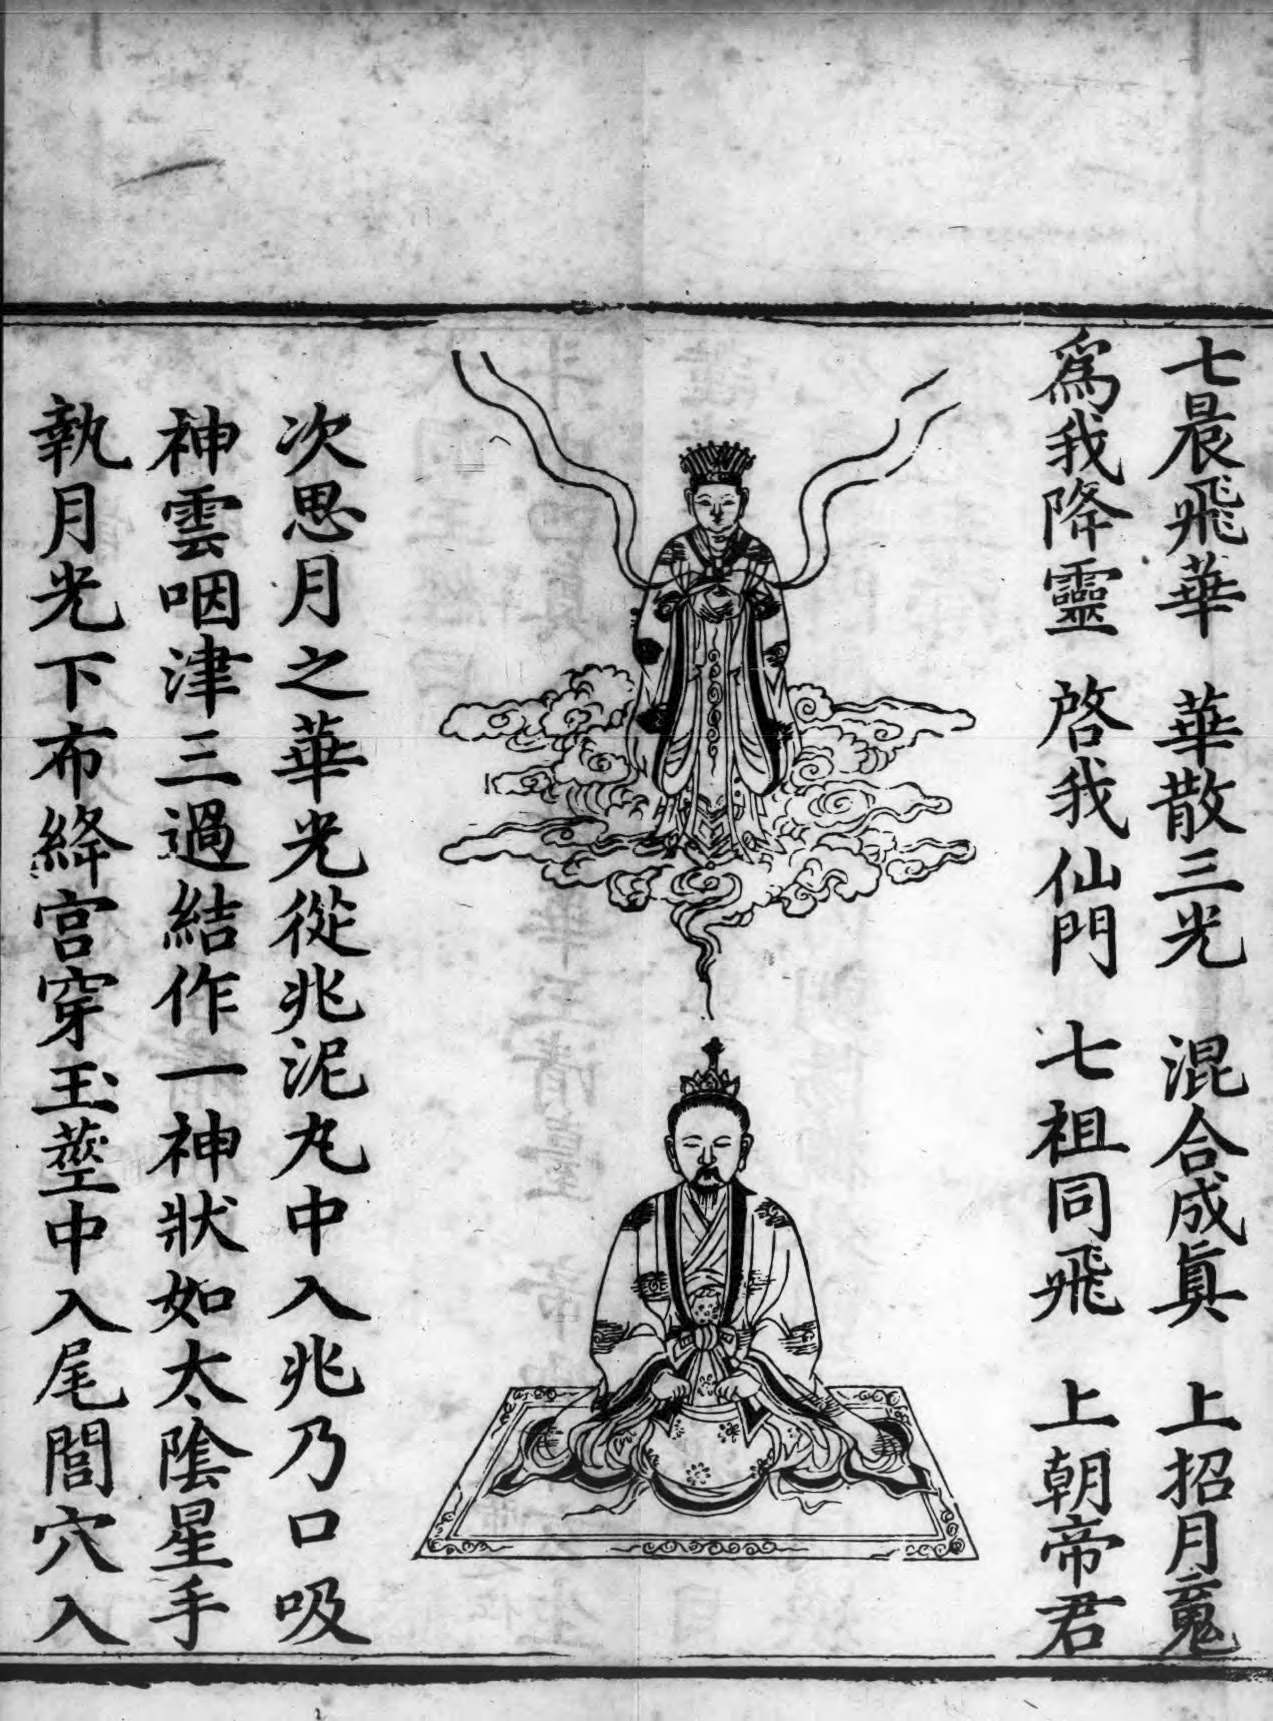 七晨飛華　華散三光　混合成眞　上招月䰟
爲我降靈　啓我仙門　七祖同飛　上朝帝君
次思月之華光從兆泥丸中入兆乃口吸
神雲咽津三過結作一神狀如太陰星手
執月光下布絳宮穿玉莖中入尾閭穴入